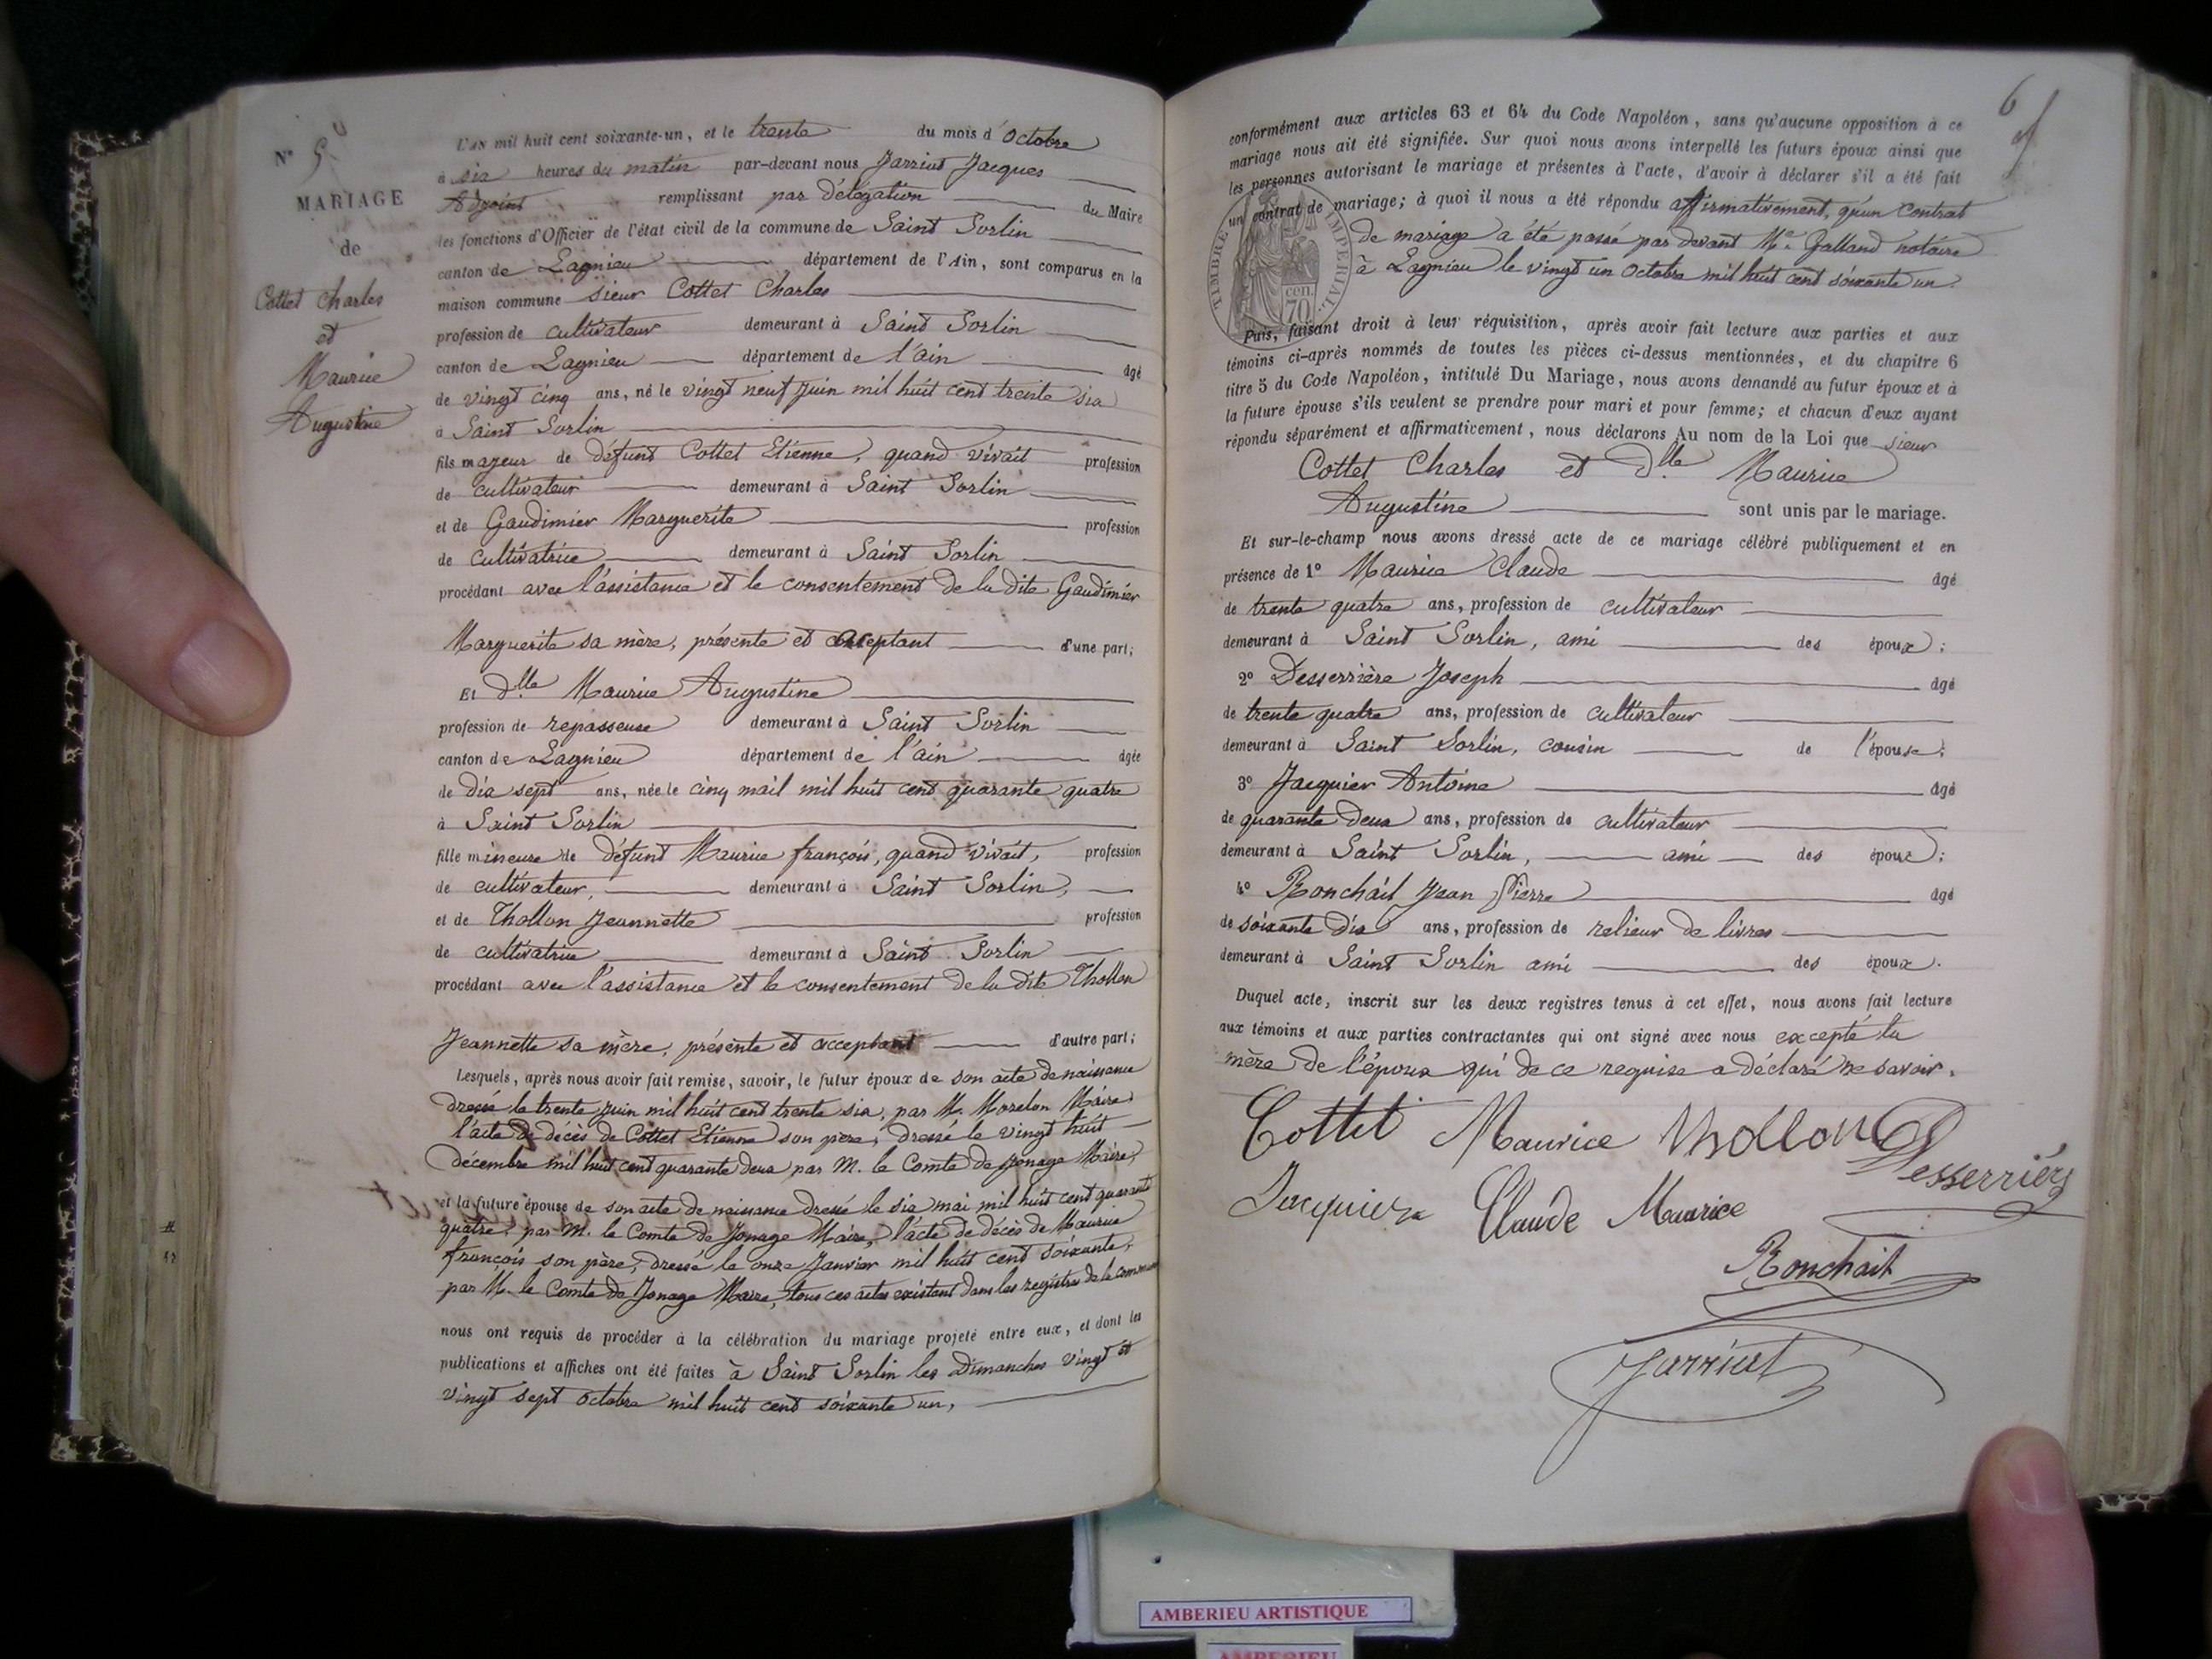 N° 5
MARIAGE
de
Cottet Charles
et
Maurice
Augustine
L'AN mil huit cent soixante-un, et le trente du mois d'Octobre
à six heures du matin par-devant nous Jarriut Jacques
Adjoint remplissant par délégation du Maire
les fonctions d'Officier de l'état civil de la commune de Saint Sorlin
canton de Lagnieu département de l'Ain, sont comparus en la
maison commune sieur Cottet Charles
profession de cultivateur demeurant à Saint Sorlin
canton de Lagnieu département de l'ain âgé
de vingt cinq ans, né le vingt neuf Juin mil huit cent trente six
à Saint Sorlin
fils majeur de défunt Cottet Etienne, quand vivait profession
de cultivateur demeurant à Saint Sorlin
et de Gaudimier Marguerite profession
de cultivatrice demeurant à Saint Sorlin
procédant avec l'assistance et le consentement de la dite Gaudimier
Marguerite sa mère, présente et acceptant d'une part;
Et Dlle Maurice Augustine
profession de repasseuse demeurant à Saint Sorlin
canton de Lagnieu département de l'ain âgée
de dix sept ans, née le cinq mail mil huit cent quarante quatre
à Saint Sorlin
fille mineure de défunt Maurice françois, quand vivait, profession
de cultivateur, demeurant à Saint Sorlin,
et de Thollon Jeannette profession
de cultivatrice demeurant à Saint Sorlin
procédant avec l'assistance et le consentement de la dite Thollon
Jeannette sa mère, présente et acceptant d'autre part;
Lesquels, après nous avoir fait remise, savoir, le futur époux de son acte de naissance
dressé le trente juin mil huit cent trente six, par M. Morelon Maire,
l'acte de décès de Cottet Etienne son père, dressé le vingt huit
décembre mil huit cent quarante deux par M. le Comte de Jonage Maire,
et la future épouse de son acte de naissance dressé le six mai mil huit cent quarante
quatre, par M. le Comte de Jonage Maire, l'acte de décès de Maurice
françois son père, dressé le onze Janvier mil huit cent soixante,
par M. le Comte de Jonage Maire, tous ces actes existant dans les registres de la commune
nous ont requis de procéder à la célébration du mariage projeté entre eux, et dont les
publications et affiches ont été faites à Saint Sorlin les Dimanches vingt et
vingt sept octobre mil huit cent soixante un,
6
conformément aux articles 63 et 64 du Code Napoléon, sans qu'aucune opposition à ce
mariage nous ait été signifiée. Sur quoi nous avons interpellé les futurs époux ainsi que
les personnes autorisant le mariage et présentes à l'acte, d'avoir à déclarer s'il a été fait
un contrat de mariage; à quoi il nous a été répondu affirmativement, qu'un contrat
de mariage a été passé par devant Me Galland notaire
à Lagnieu le vingt un Octobre mil huit cent soixante un
TIMBRE IMPERIAL
cen.
70
Puis, faisant droit à leur réquisition, après avoir fait lecture aux parties et aux
témoins ci-après nommés de toutes les pièces ci-dessus mentionnées, et du chapitre 6
titre 5 du Code Napoléon, intitulé Du Mariage, nous avons demandé au futur époux et à
la future épouse s'ils veulent se prendre pour mari et pour femme; et chacun d'eux ayant
répondu séparément et affirmativement, nous déclarons Au nom de la Loi que sieur
Cottet Charles et Dlle Maurice
Augustine sont unis par le mariage.
Et sur-le-champ nous avons dressé acte de ce mariage célébré publiquement et en
présence de 1° Maurice Claude âgé
de trente quatre ans, profession de cultivateur
demeurant à Saint Sorlin, ami des époux;
2° Desserrière Joseph âgé
de trente quatre ans, profession de cultivateur
demeurant à Saint Sorlin, cousin de l'épouse;
3° Jacquier Antoine âgé
de quarante deux ans, profession de cultivateur
demeurant à Saint Sorlin, ami des époux;
4° Ronchait Jean Pierre âgé
de soixante dix ans, profession de relieur de livres
demeurant à Saint Sorlin ami des époux.
Duquel acte, inscrit sur les deux registres tenus à cet effet, nous avons fait lecture
aux témoins et aux parties contractantes qui ont signé avec nous excepté la
mère de l'époux qui de ce requise a déclaré ne savoir.
Cottet Maurice Thollon Desserriére
Jacquier Claude Maurice
Ronchait
Jarriut
AMBERIEU ARTISTIQUE
AMBERIEU